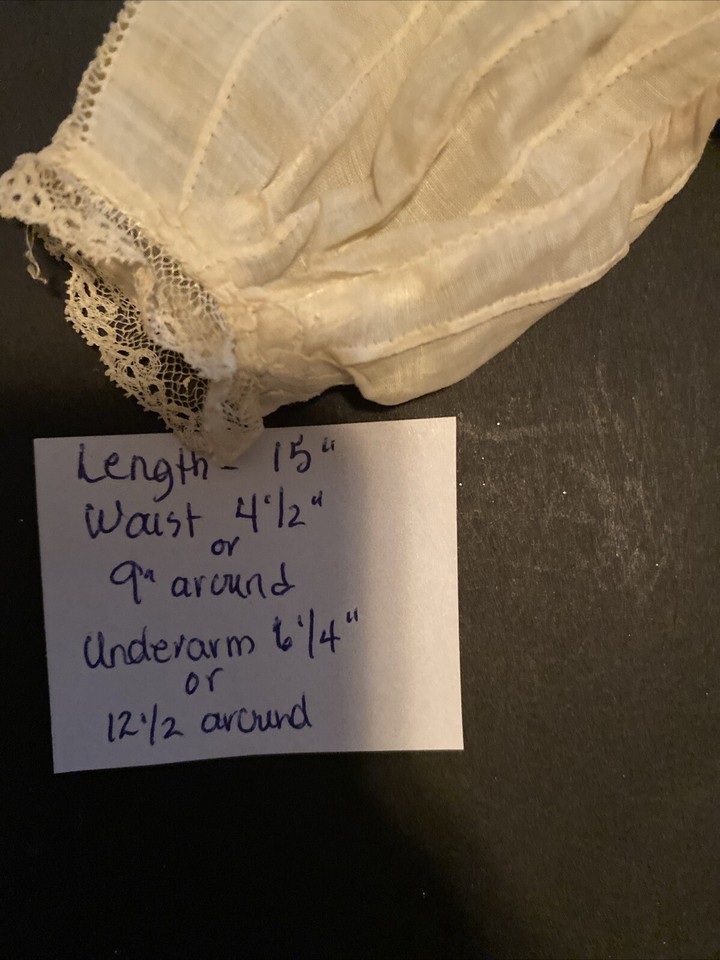 Length - 15"
Waist 4 1/2"
or
9" around
Underarm 6 1/4"
or
12 1/2 around